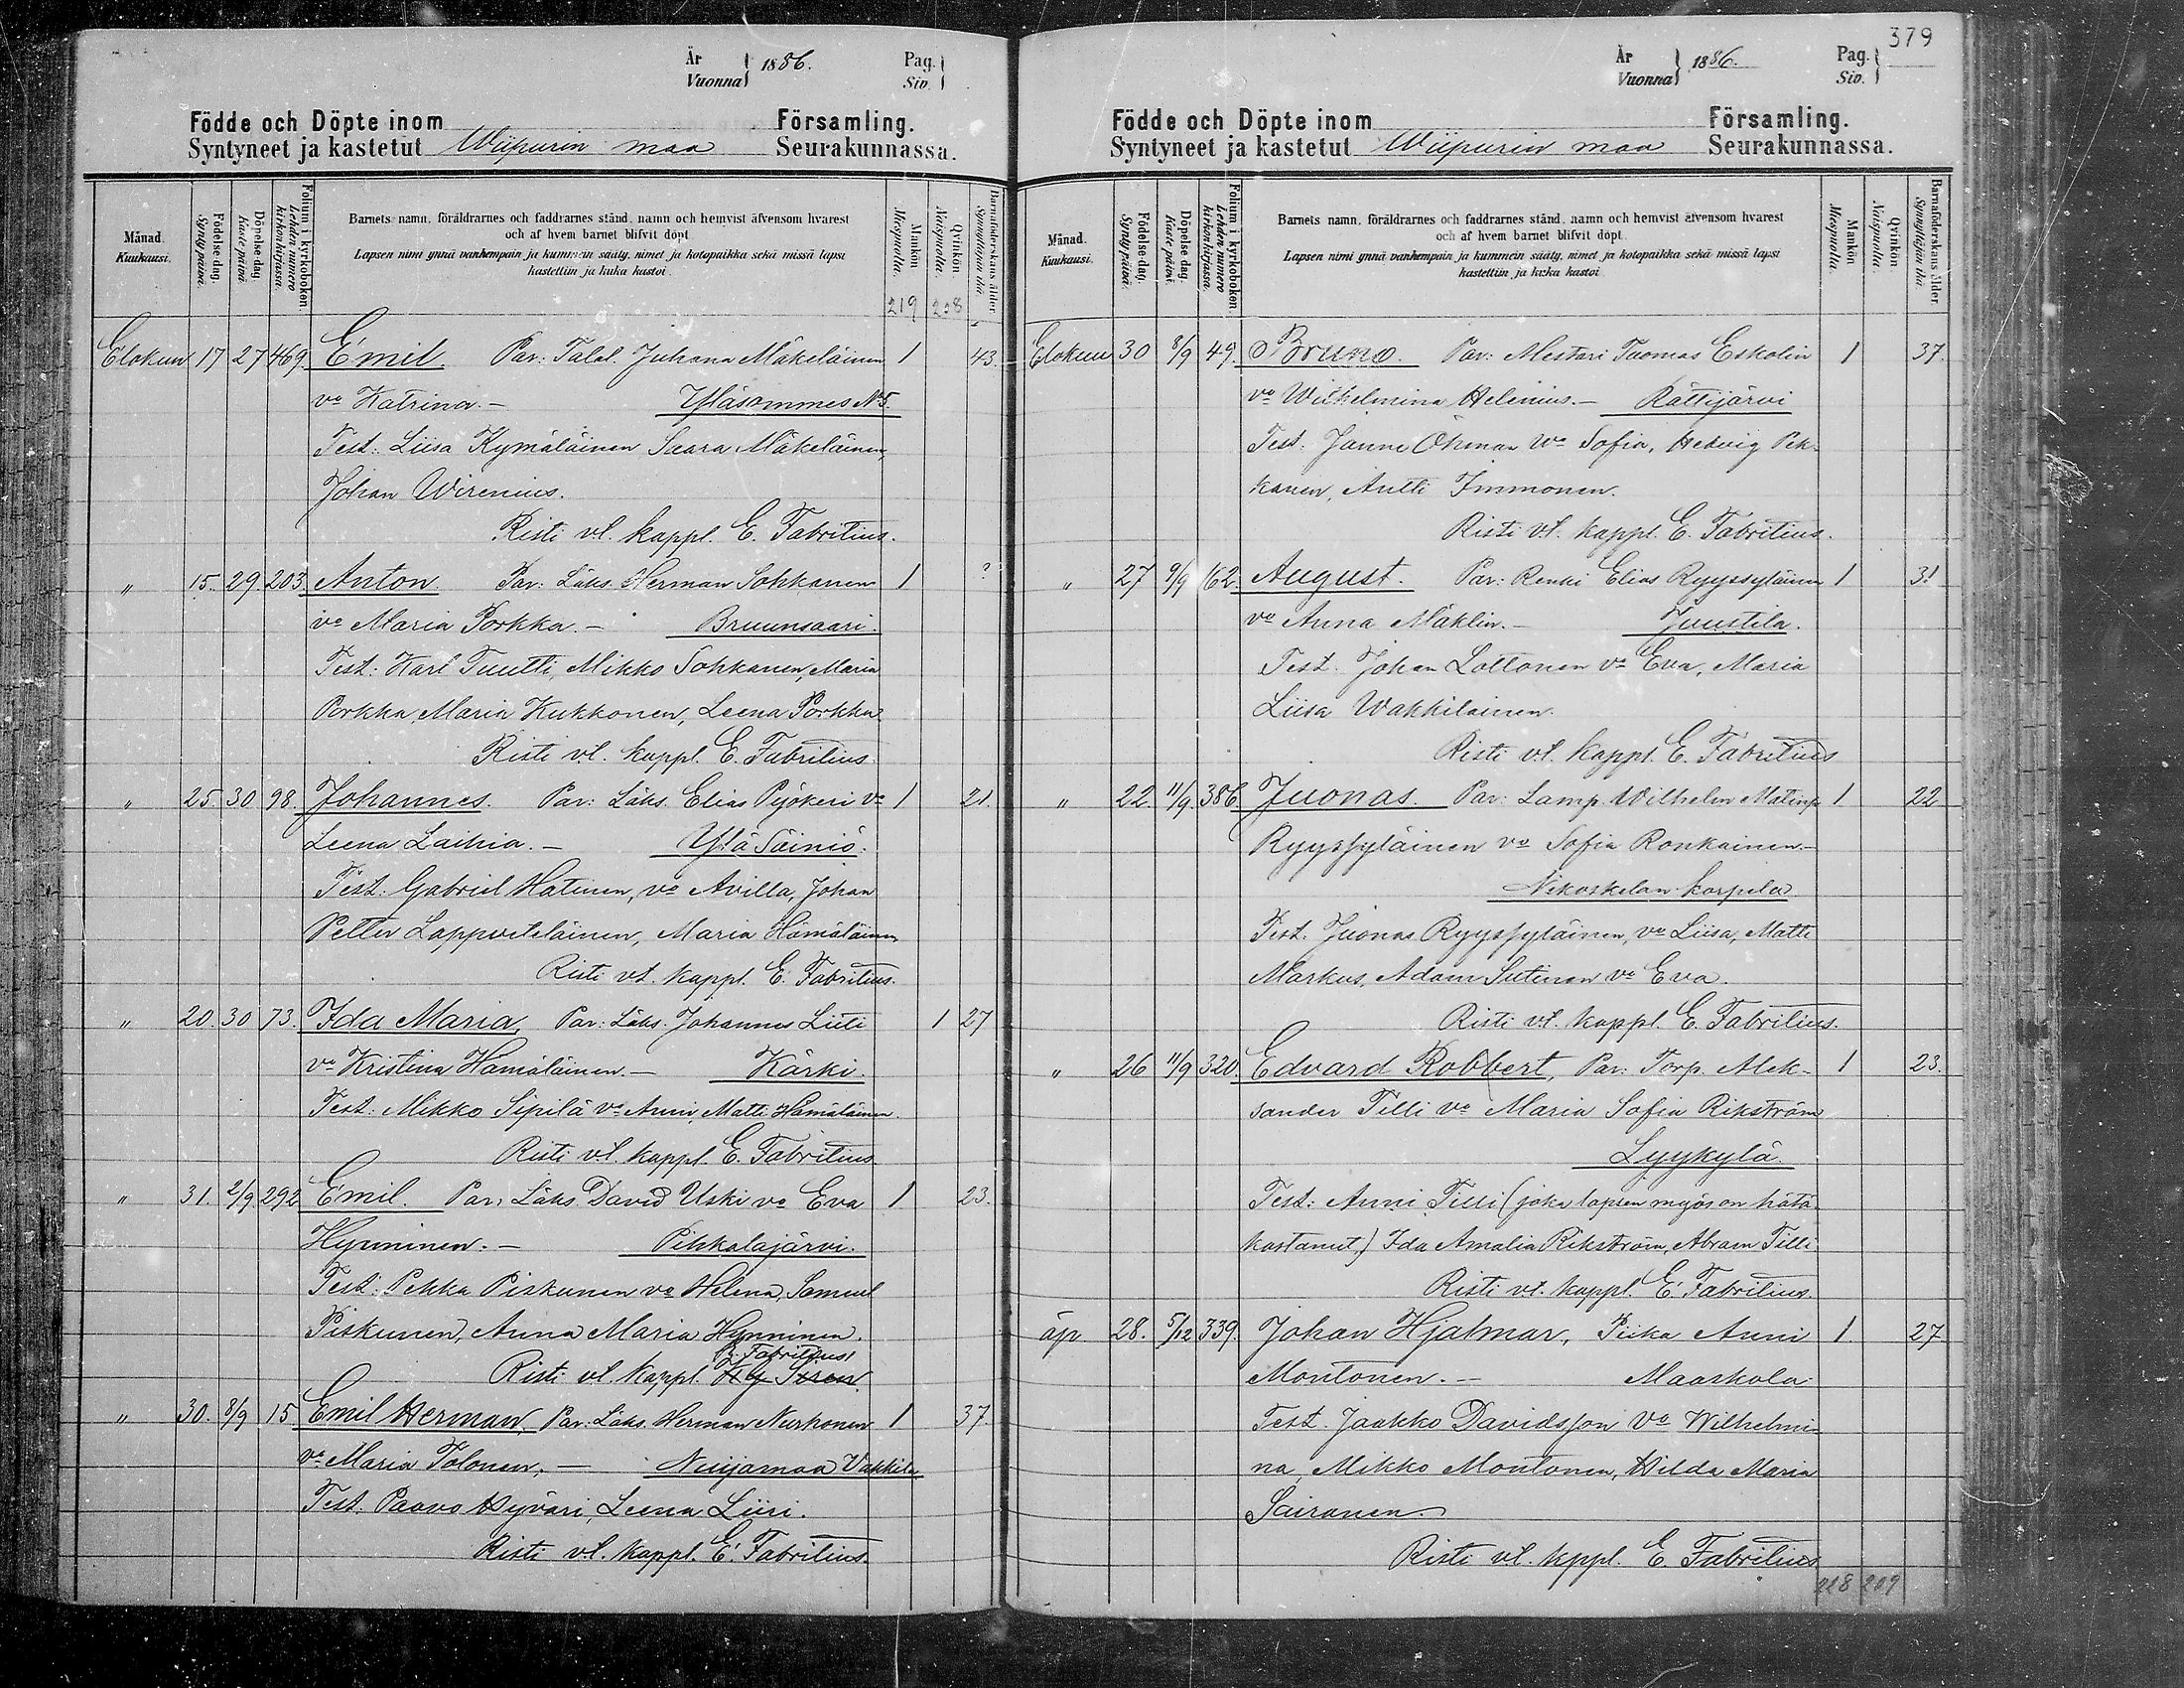 År
Vuonna } 1886.
Pag.
Siv. }
Födde och Döpte inom Församling.
Syntyneet ja kastetut Wiipurin maa Seurakunnassa.
Månad.
Kuukausi.
Födelse dag.
Syntypäivä.
Döpelse dag.
Kastepäivä.
Folium i kyrkoboken.
Lehden numero kirkonkirjassa.
Barnets namn, föräldrarnes och faddrarnes stånd, namn och hemvist äfvensom hvarest
och af hvem barnet blifvit döpt.
Lapsen nimi ynnä vanhempain ja kummein sääty, nimet ja kotopaikka sekä missä lapsi
kastettiin ja kuka kastoi.
Mankön
Miespuolia.
Qvinkön
Naispuolia.
Barnaföderskans ålder.
Synnyttäjän ikä
219 208
Elokuu 17 27 469. Emil. Par: Talal. Juhana Mäkeläinen 1 43.
vo Katrina.- Yläsommes No 5.
Test: Liisa Kymäläinen Saara Mäkeläinen,
Johan Wirenius.
Risti vt. kappl. E. Fabritius.
" 15. 29. 203. Anton. Par: Läks. Herman Sohkanen 1 ?
vo Maria Porkka.- Bruunsaari.
Test: Karl Tuutti, Mikko Sohkanen, Maria
Porkka, Maria Kukkonen, Leena Porkka
Risti vt. kappl. E. Fabritius
" 25. 30 98. Johannes. Par: Läks. Elias Pyökeri vo 1 21.
Leena Laihia.- Ylä Säiniö.
Test: Gabriel Hatinen, vo Avilla, Johan
Petter Lappveteläinen, Maria Hämäläinen
Risti vt. kappl. E. Fabritius.
" 20. 30 73. Ida Maria, Par: Läks. Johannes Liiti 1 27
vo Kristina Hämäläinen.- Kärki.
Test: Mikko Sipilä vo Anni, Matti Hämäläinen.
Risti vt. kappl. E. Fabritius.
" 31. 2/9. 292 Emil. Par: Läks. David Uski vo Eva 1 23.
Hynninen.- Pihkalajärvi.
Test: Pekka Piskunen vo Helena, Samuel
Piskunen, Anna Maria Hynninen.
E. Fabritius
Risti vt. kappl. Hj Siren.
" 30. 8/9 15 Emil Herman, Par: Läks. Herman Nurkonen 1 37.
vo Maria Tolonen,- Nuijamaa Vakkila
Test: Paavo Hyväri, Leena Liiri.
Risti vt. kappl. E. Fabritius.
379
År
Vuonna } 1886.
Pag.
Siv. }
Födde och Döpte inom Församling.
Syntyneet ja kastetut Wiipurin maa Seurakunnassa.
Månad.
Kuukausi.
Födelse dag.
Syntypäivä.
Döpelse dag.
Kastepäivä.
Folium i kyrkoboken.
Lehden numero kirkonkirjassa.
Barnets namn, föräldrarnes och faddrarnes stånd, namn och hemvist äfvensom hvarest
och af hvem barnet blifvit döpt.
Lapsen nimi ynnä vanhempain ja kummein sääty, nimet ja kotopaikka sekä missä lapsi
kastettiin ja kuka kastoi
Mankön
Miespuolia.
Qvinkön
Naispuolia.
Barnaföderskans ålder.
Synnyttäjän ikä
Elokuu 30 8/9 49. Bruno. Par: Mestari Tuomas Eskolin 1 37.
vo Wilhelmina Helenius.- Rättijärvi
Test: Janne Öhman wo Sofia, Hedvig Pek-
kanen, Antti Immonen.
Risti v.t. kappl. E. Fabritius.
" 27 9/9 162. August. Par: Renki Elias Ryyssyläinen 1 31
vo Anna Mäklin.- Juustila.
Test. Johan Lottonen vo Eva, Maria
Liisa Wakkilainen.
Risti v.t. kappl. E. Fabritius
" 22. 11/9. 386. Juonas. Par: Lamp. Wilhelm Matinp. 1 22
Ryyssyläinen vo Sofia Ronkainen.-
Nekoskelan karpela
Test. Juonas Ryyssyläinen, vo Liisa, Matti
Markus, Adam Sutinen vo Eva.
Risti v.t. kappl. E. Fabritius.
" 26 11/9 320. Edvard Robbert, Par: Torp. Alek- 1 23.
sander Tilli vo Maria Sofia Rikström
Lyykylä.
Test: Anni Tilli (joka lapsen myös on hätä
kastanut,) Ida Amalia Rikström, Abram Tilli
Risti vt. kappl. E. Fabritius.
äp 28. 5/12 339. Johan Hjalmar, Piika Anni 1. 27
Montonen.- Maaskola
Test. Jaakko Davidsson vo Wilhelmi-
na, Mikko Montonen, Hilda Maria
Sairanen.
Risti vt. kppl. E. Fabritius
228 209